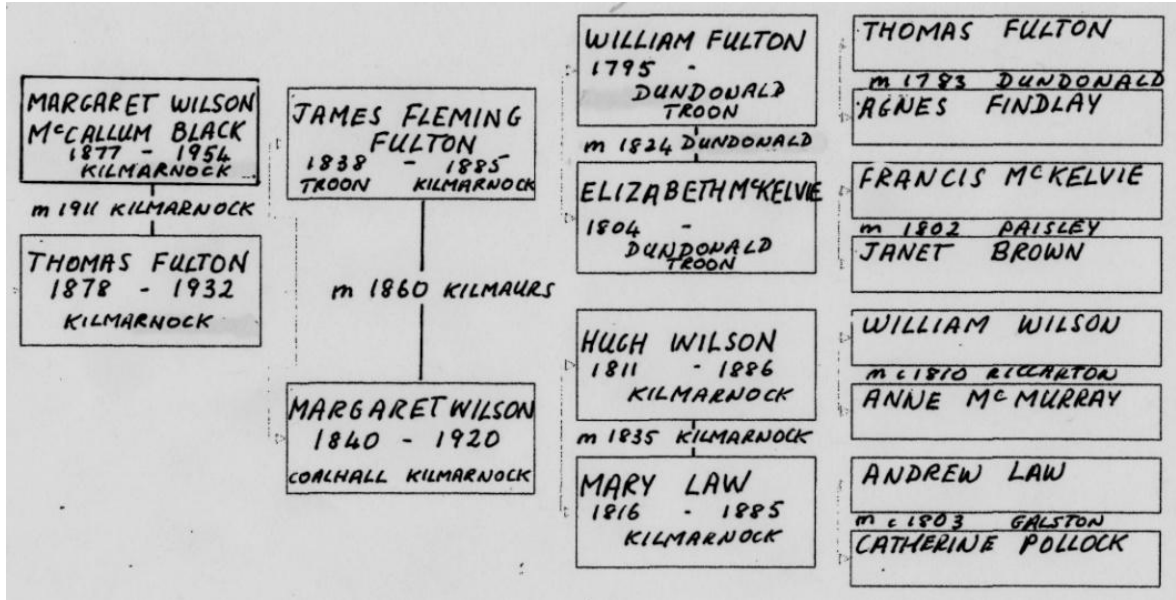 MARGARET WILSON
McCALLUM BLACK
1877 - 1954
KILMARNOCK
m 1911 KILMARNOCK
THOMAS FULTON
1878 - 1932
KILMARNOCK
JAMES FLEMING
FULTON
1838 - 1885
TROON KILMARNOCK
m 1860 KILMAURS
MARGARET WILSON
1840 - 1920
COALHALL KILMARNOCK
WILLIAM FULTON
1795 -
DUNDONALD
TROON
m 1824 DUNDONALD
ELIZABETH McKELVIE
1804 -
DUNDONALD
TROON
HUGH WILSON
1811 - 1886
KILMARNOCK
m 1835 KILMARNOCK
MARY LAW
1816 - 1885
KILMARNOCK
THOMAS FULTON
m 1783 DUNDONALD
AGNES FINDLAY
FRANCIS McKELVIE
m 1802 PAISLEY
JANET BROWN
WILLIAM WILSON
m c1810 RICCARTON
ANNE McMURRAY
ANDREW LAW
m c1803 GALSTON
CATHERINE POLLOCK